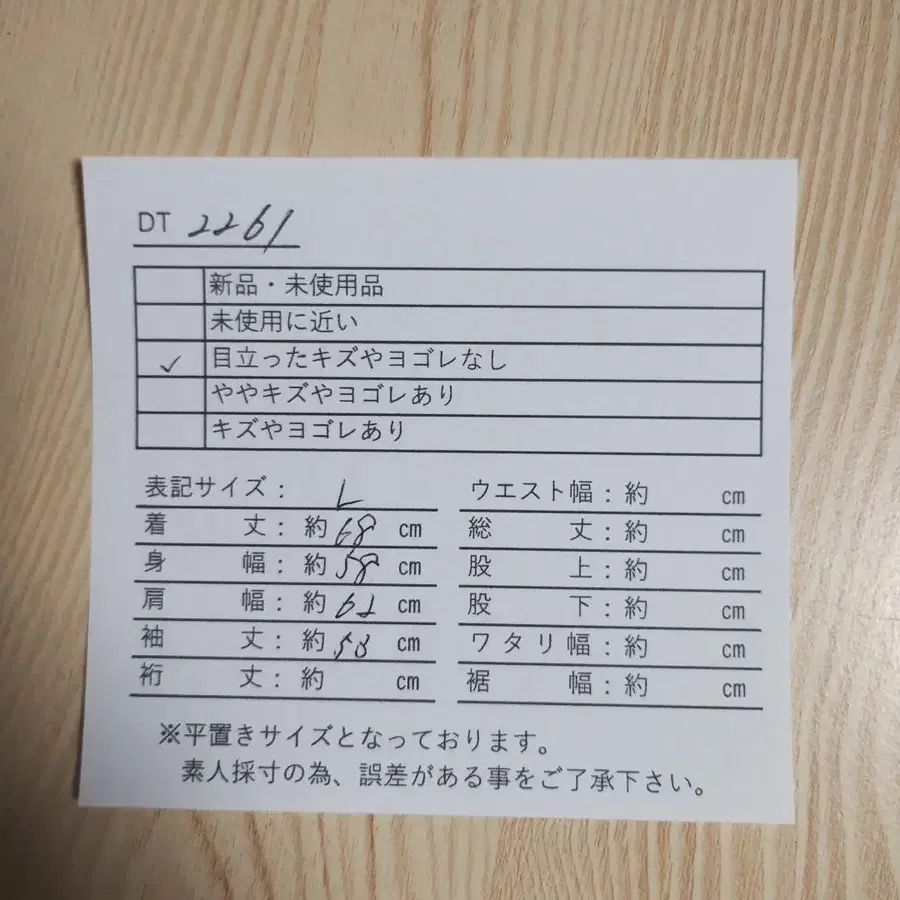 DT 2261
新品・未使用品
未使用に近い
✓ 目立ったキズやヨゴレなし
ややキズやヨゴレあり
キズやヨゴレあり
表記サイズ： L
着丈：約68cm
身幅：約58cm
肩幅：約62cm
袖丈：約58cm
裄丈：約 cm
ウエスト幅：約 cm
総丈：約 cm
股上：約 cm
股下：約 cm
ワタリ幅：約 cm
裾幅：約 cm
※平置きサイズとなっております。
素人採寸の為、誤差がある事をご了承下さい。